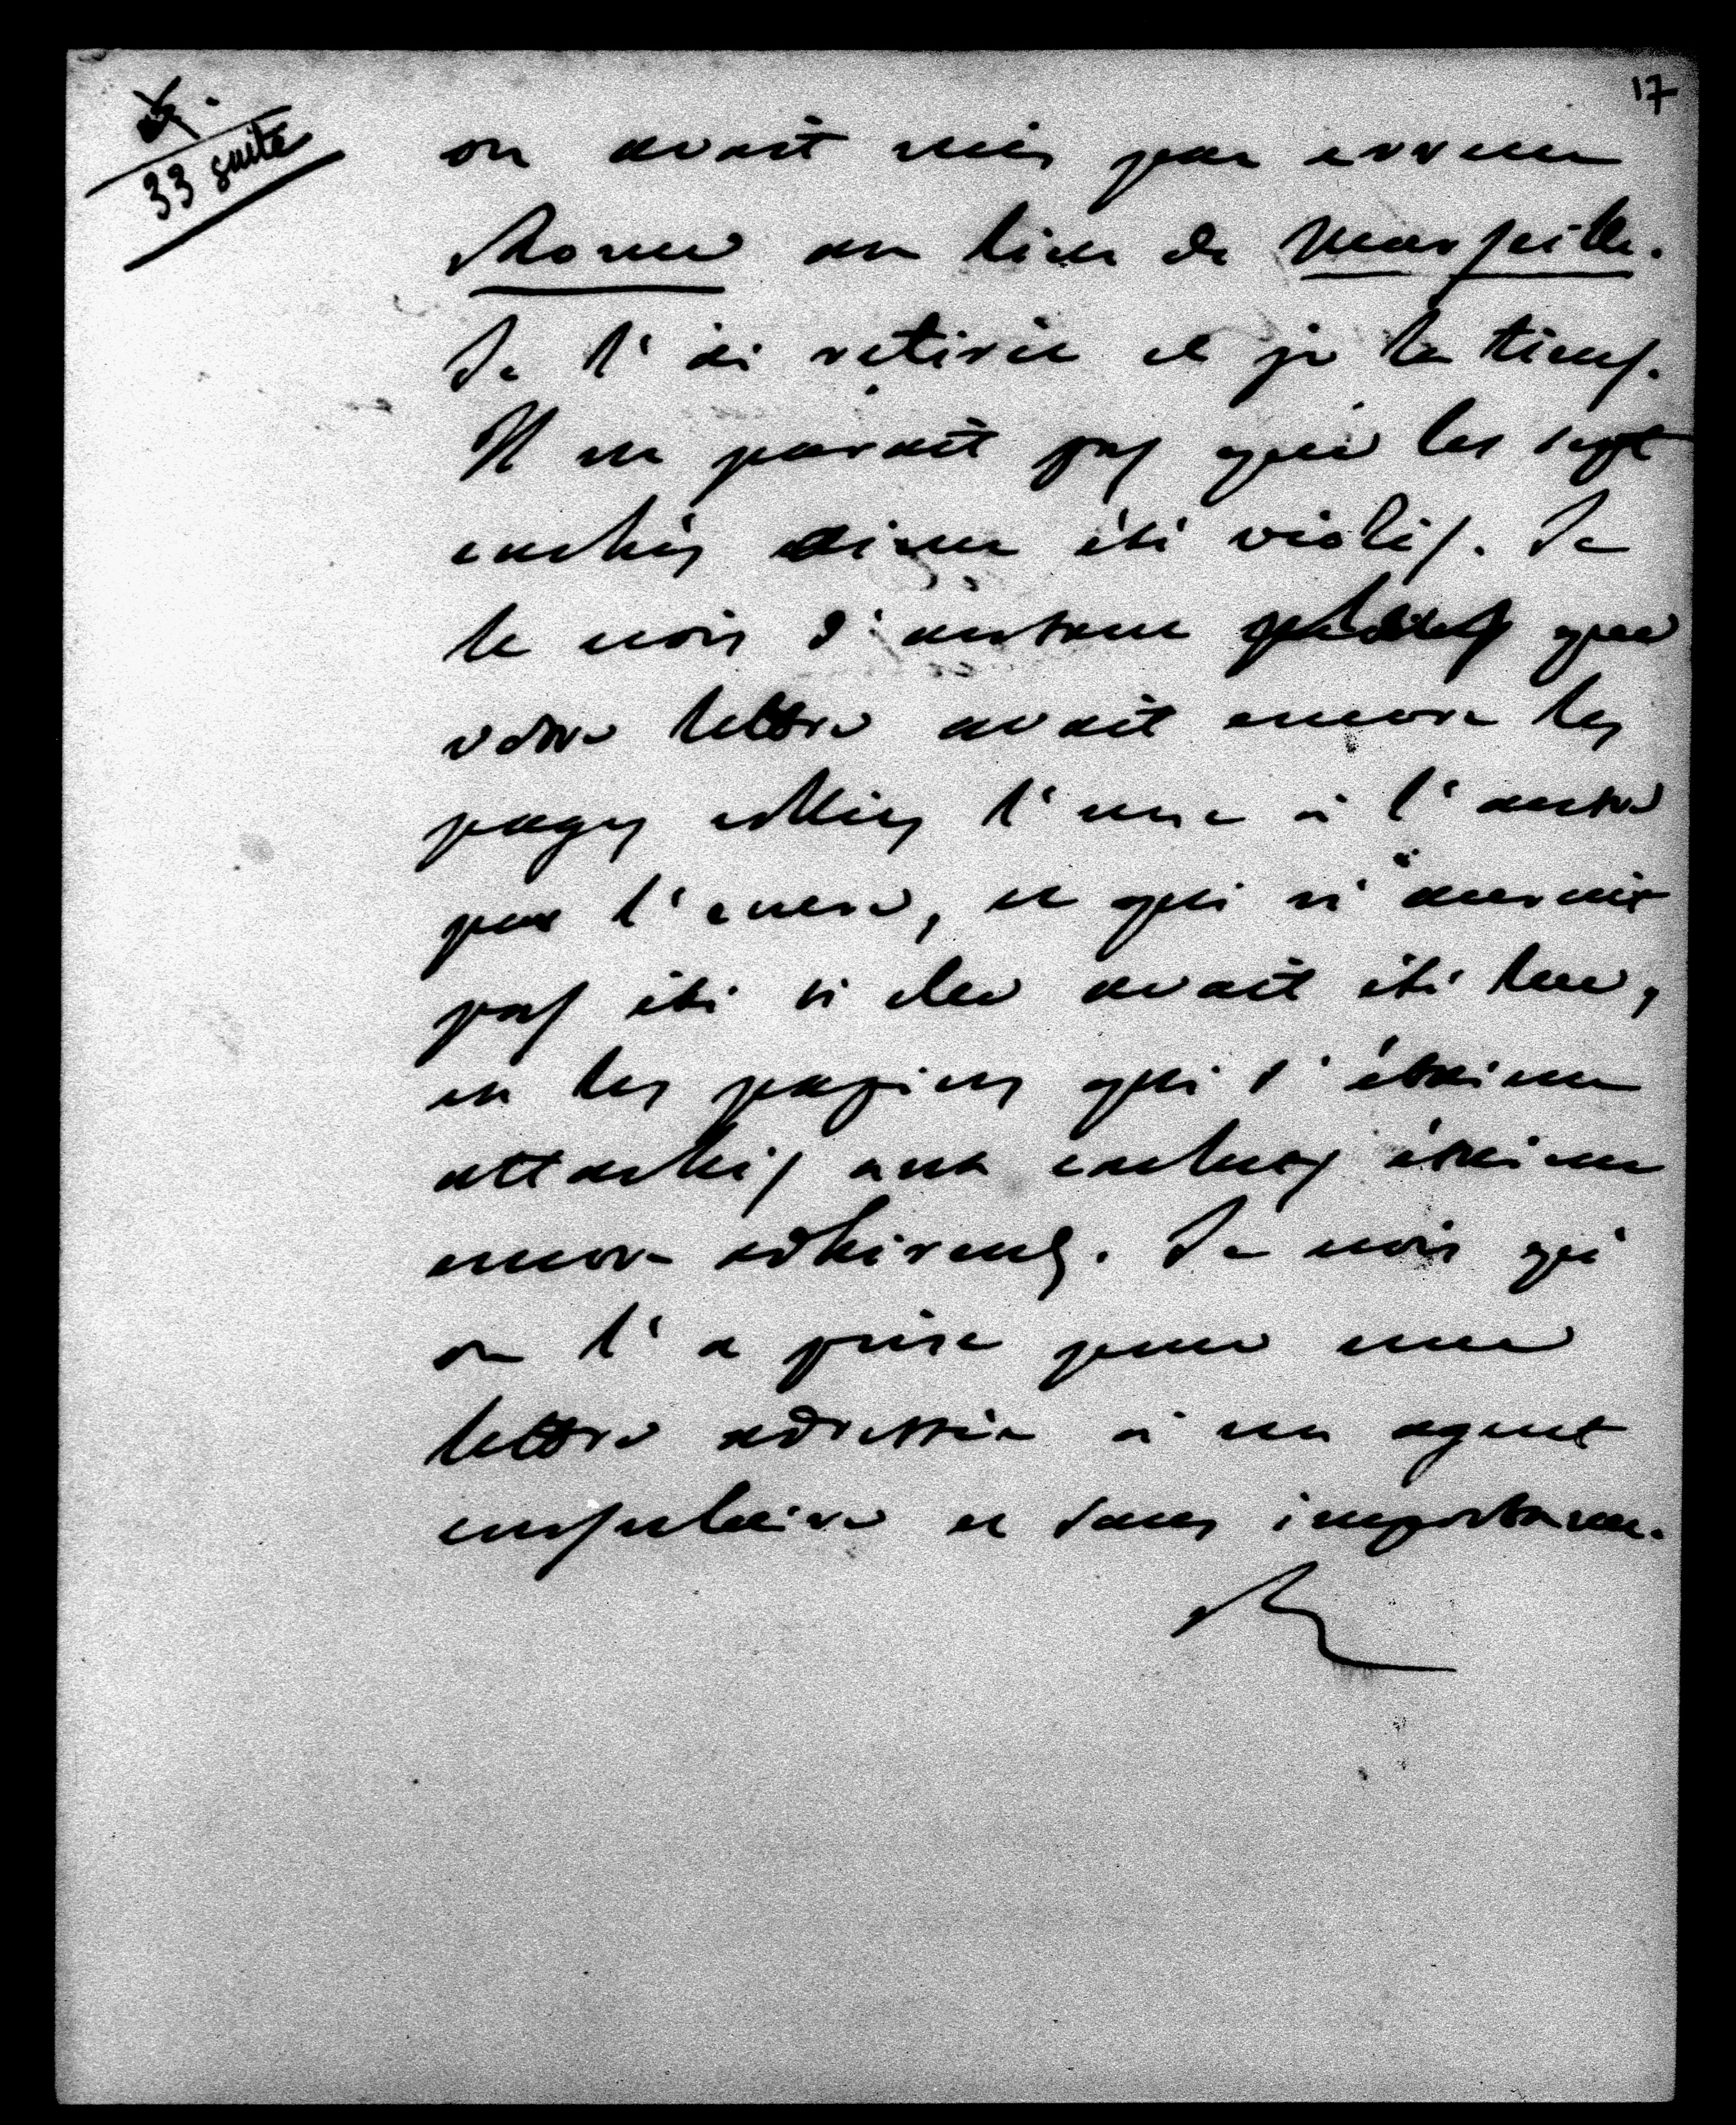 17
33 suite
on avait mis par erreur
Rome au lieu de Marseille.
Je l'ai retirée et je la tiens.
Il ne parait pas que les sept
cachets aient été violés. Je
le crois d'autant plus que
votre lettre avait encore les
pages collées l'une à l'autre
par l'encre, ce qui n'aurait
pas été si elle avait été lue,
et les papiers qui s'étaient
attachés aux cachets étaient
encore adhérents. Je crois qu'
on l'a prise pour une
lettre adressée à un agent
consulaire et sans importance.